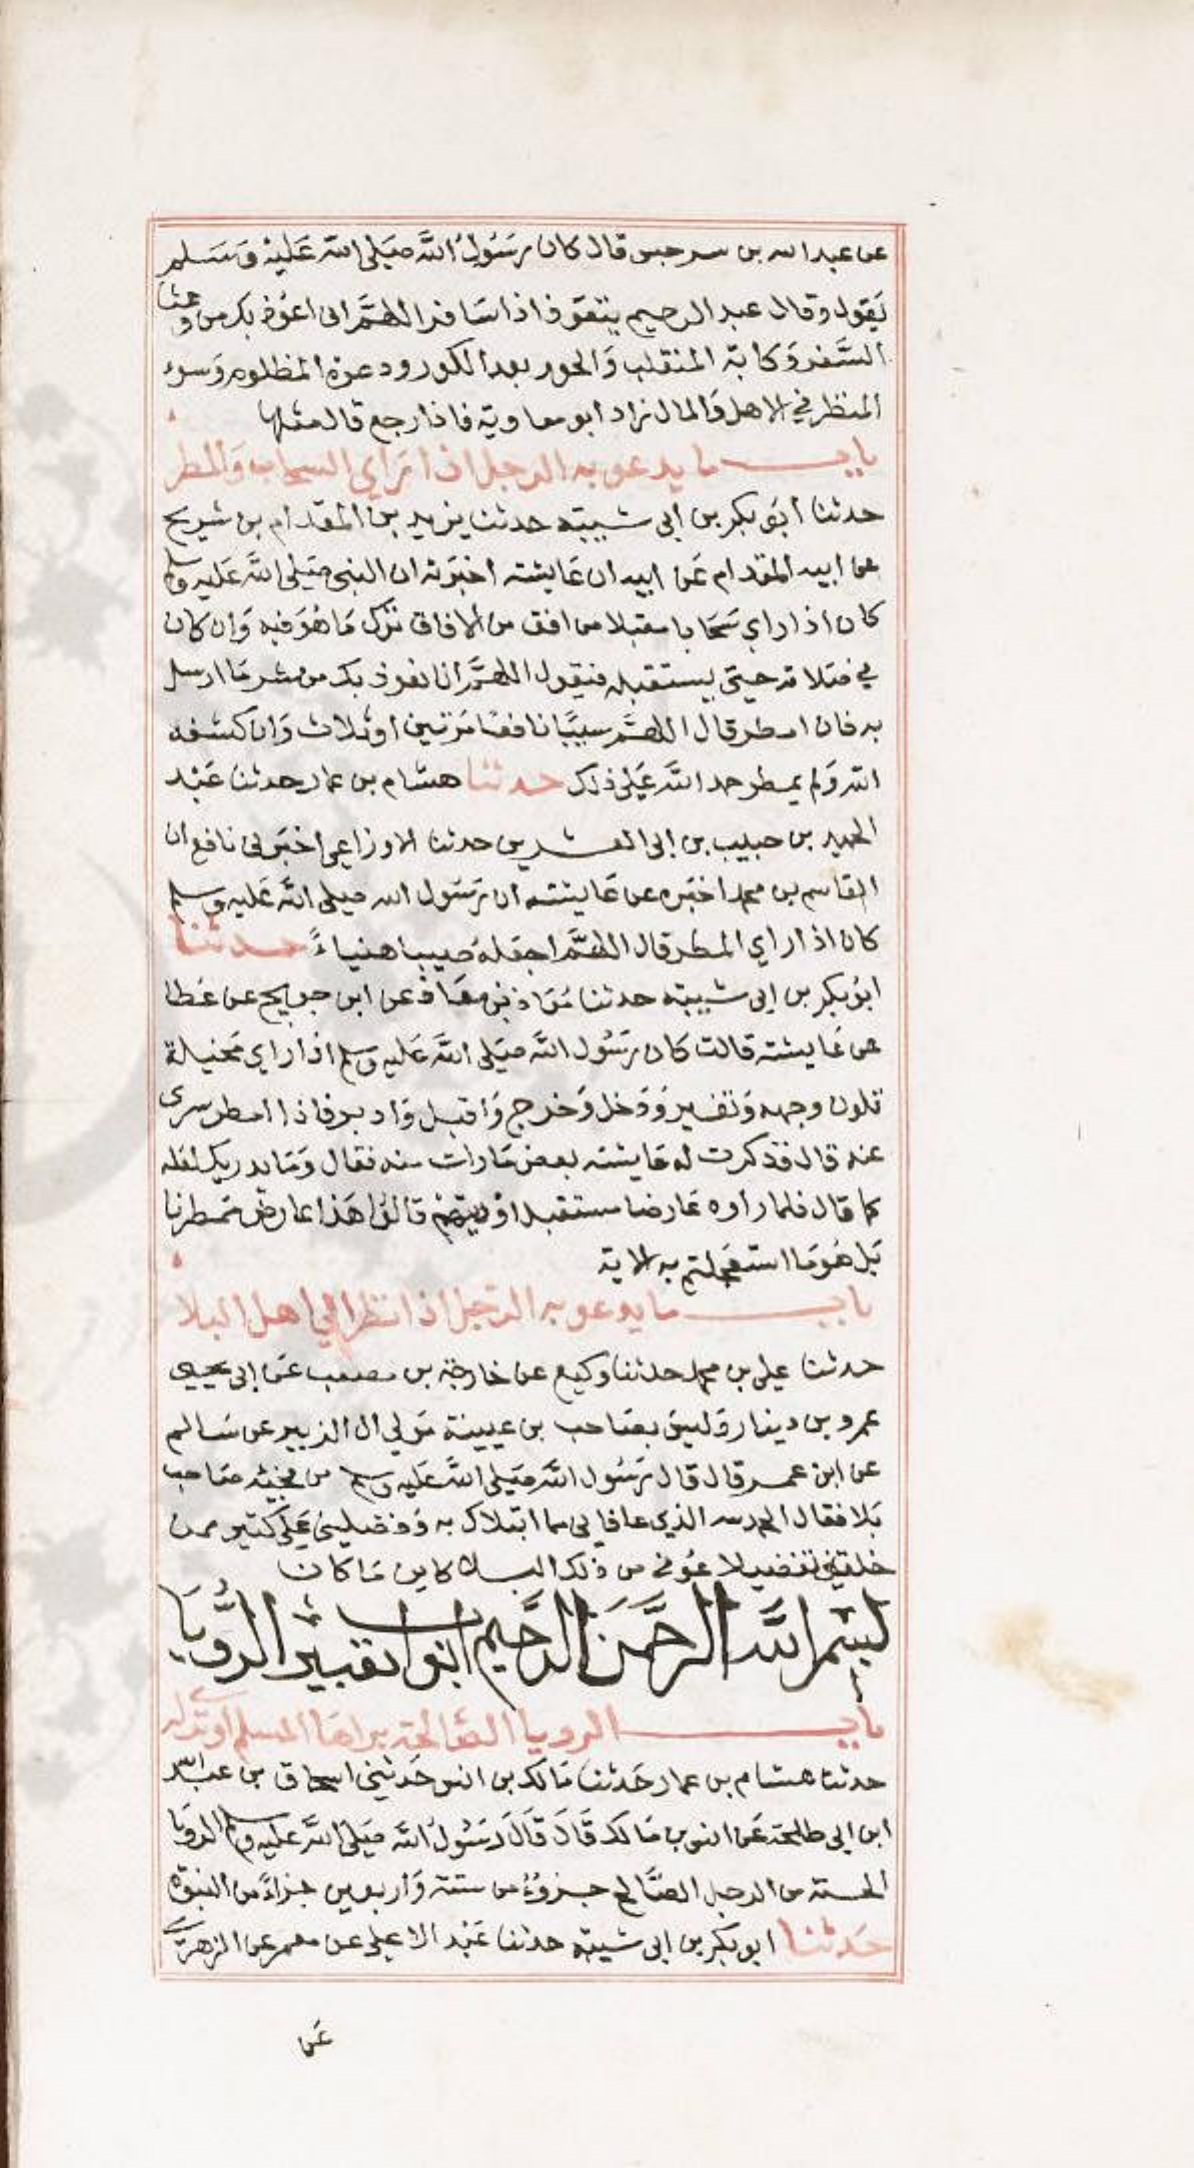 عن عبدالله بن سرجس قال كان رسول الله صلى الله عليه وسلم
يقول وقال عبد الرحيم يتعوذ اذا سافر اللهم اني اعوذ بك من وعثا
السفر وكابة المنقلب والحور بعد الكور ودعوة المظلوم وسوء
المنظر في الاهل والمال زاد ابو معاوية فاذا رجع قال مثلها
باب ما يدعو به الرجل اذا راي السحاب والمطر
حدثنا ابو بكر بن ابي شيبة حدثنا يزيد بن المقدام بن شريح
عن ابيه المقدام عن ابيه ان عايشة اخبرته ان النبي صلى الله عليه وسلم
كان اذا راي سحابا مقبلا من افق من الافاق ترك ما هو فيه وان كان
في صلاته حتى يستقبله فيقول اللهم انا نعوذ بك من شر ما ارسل
به فان امطر قال اللهم سيبا نافعا مرتين او ثلاث وان كشفه
الله ولم يمطر حمد الله على ذلك حدثنا هشام بن عمار حدثنا عبد
الحميد بن حبيب بن ابي العشرين حدثنا الاوزاعي اخبرني نافع ان
القاسم بن محمد اخبره عن عايشة ان رسول الله صلى الله عليه وسلم
كان اذا راي المطر قال اللهم اجعله صيبا هنياء حدثنا
ابو بكر بن ابي شيبة حدثنا معاذ بن معاذ عن ابن جريج عن عطا
عن عايشة قالت كان رسول الله صلى الله عليه وسلم اذا راي مخيلة
تلون وجهه وتغير ودخل وخرج واقبل وادبر فاذا امطر سرى
عنه قال فذكرت له عايشة بعض ما رات منه فقال وما يدريك لعله
كما قال فلما راوه عارضا مستقبل اوديتهم قالوا هذا عارض ممطرنا
بل هو ما استعجلتم به الاية
باب ما يدعو به الرجل اذا نظر الي اهل البلا
حدثنا علي بن محمد حدثنا وكيع عن خارجة بن مصعب عن ابي يحيى
عمرو بن دينار وليس بصاحب بن عيينة مولي ال الزبير عن سالم
عن ابن عمر قال قال رسول الله صلى الله عليه وسلم من فجئه صاحب
بلا فقال الحمد لله الذي عافاني مما ابتلاك به وفضلني على كثير ممن
خلق تفضيلا عوفي من ذلك البلا كاين ما كان
بسم الله الرحمن الرحيم ابواب تعبير الرويا
باب الرويا الصالحة يراها المسلم او ترى له
حدثنا هشام بن عمار حدثنا مالك بن انس حدثني اسحاق بن عبد الله
ابن ابي طلحة عن انس بن مالك قال قال رسول الله صلى الله عليه وسلم الرويا
الحسنة من الرجل الصالح جزؤ من ستة واربعين جزاء من النبوة
حدثنا ابو بكر بن ابي شيبة حدثنا عبد الاعلى عن معمر عن الزهري
عن